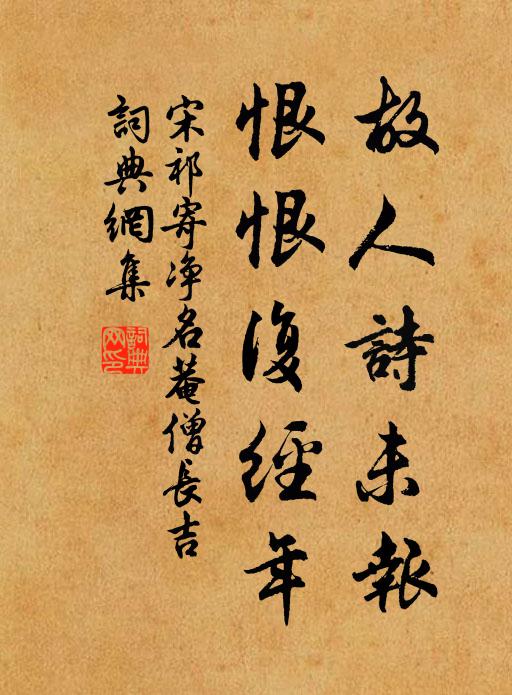 故人詩未報
恨恨復經年
宋祁寄净名菴僧長吉
詞典網集
詞典網印